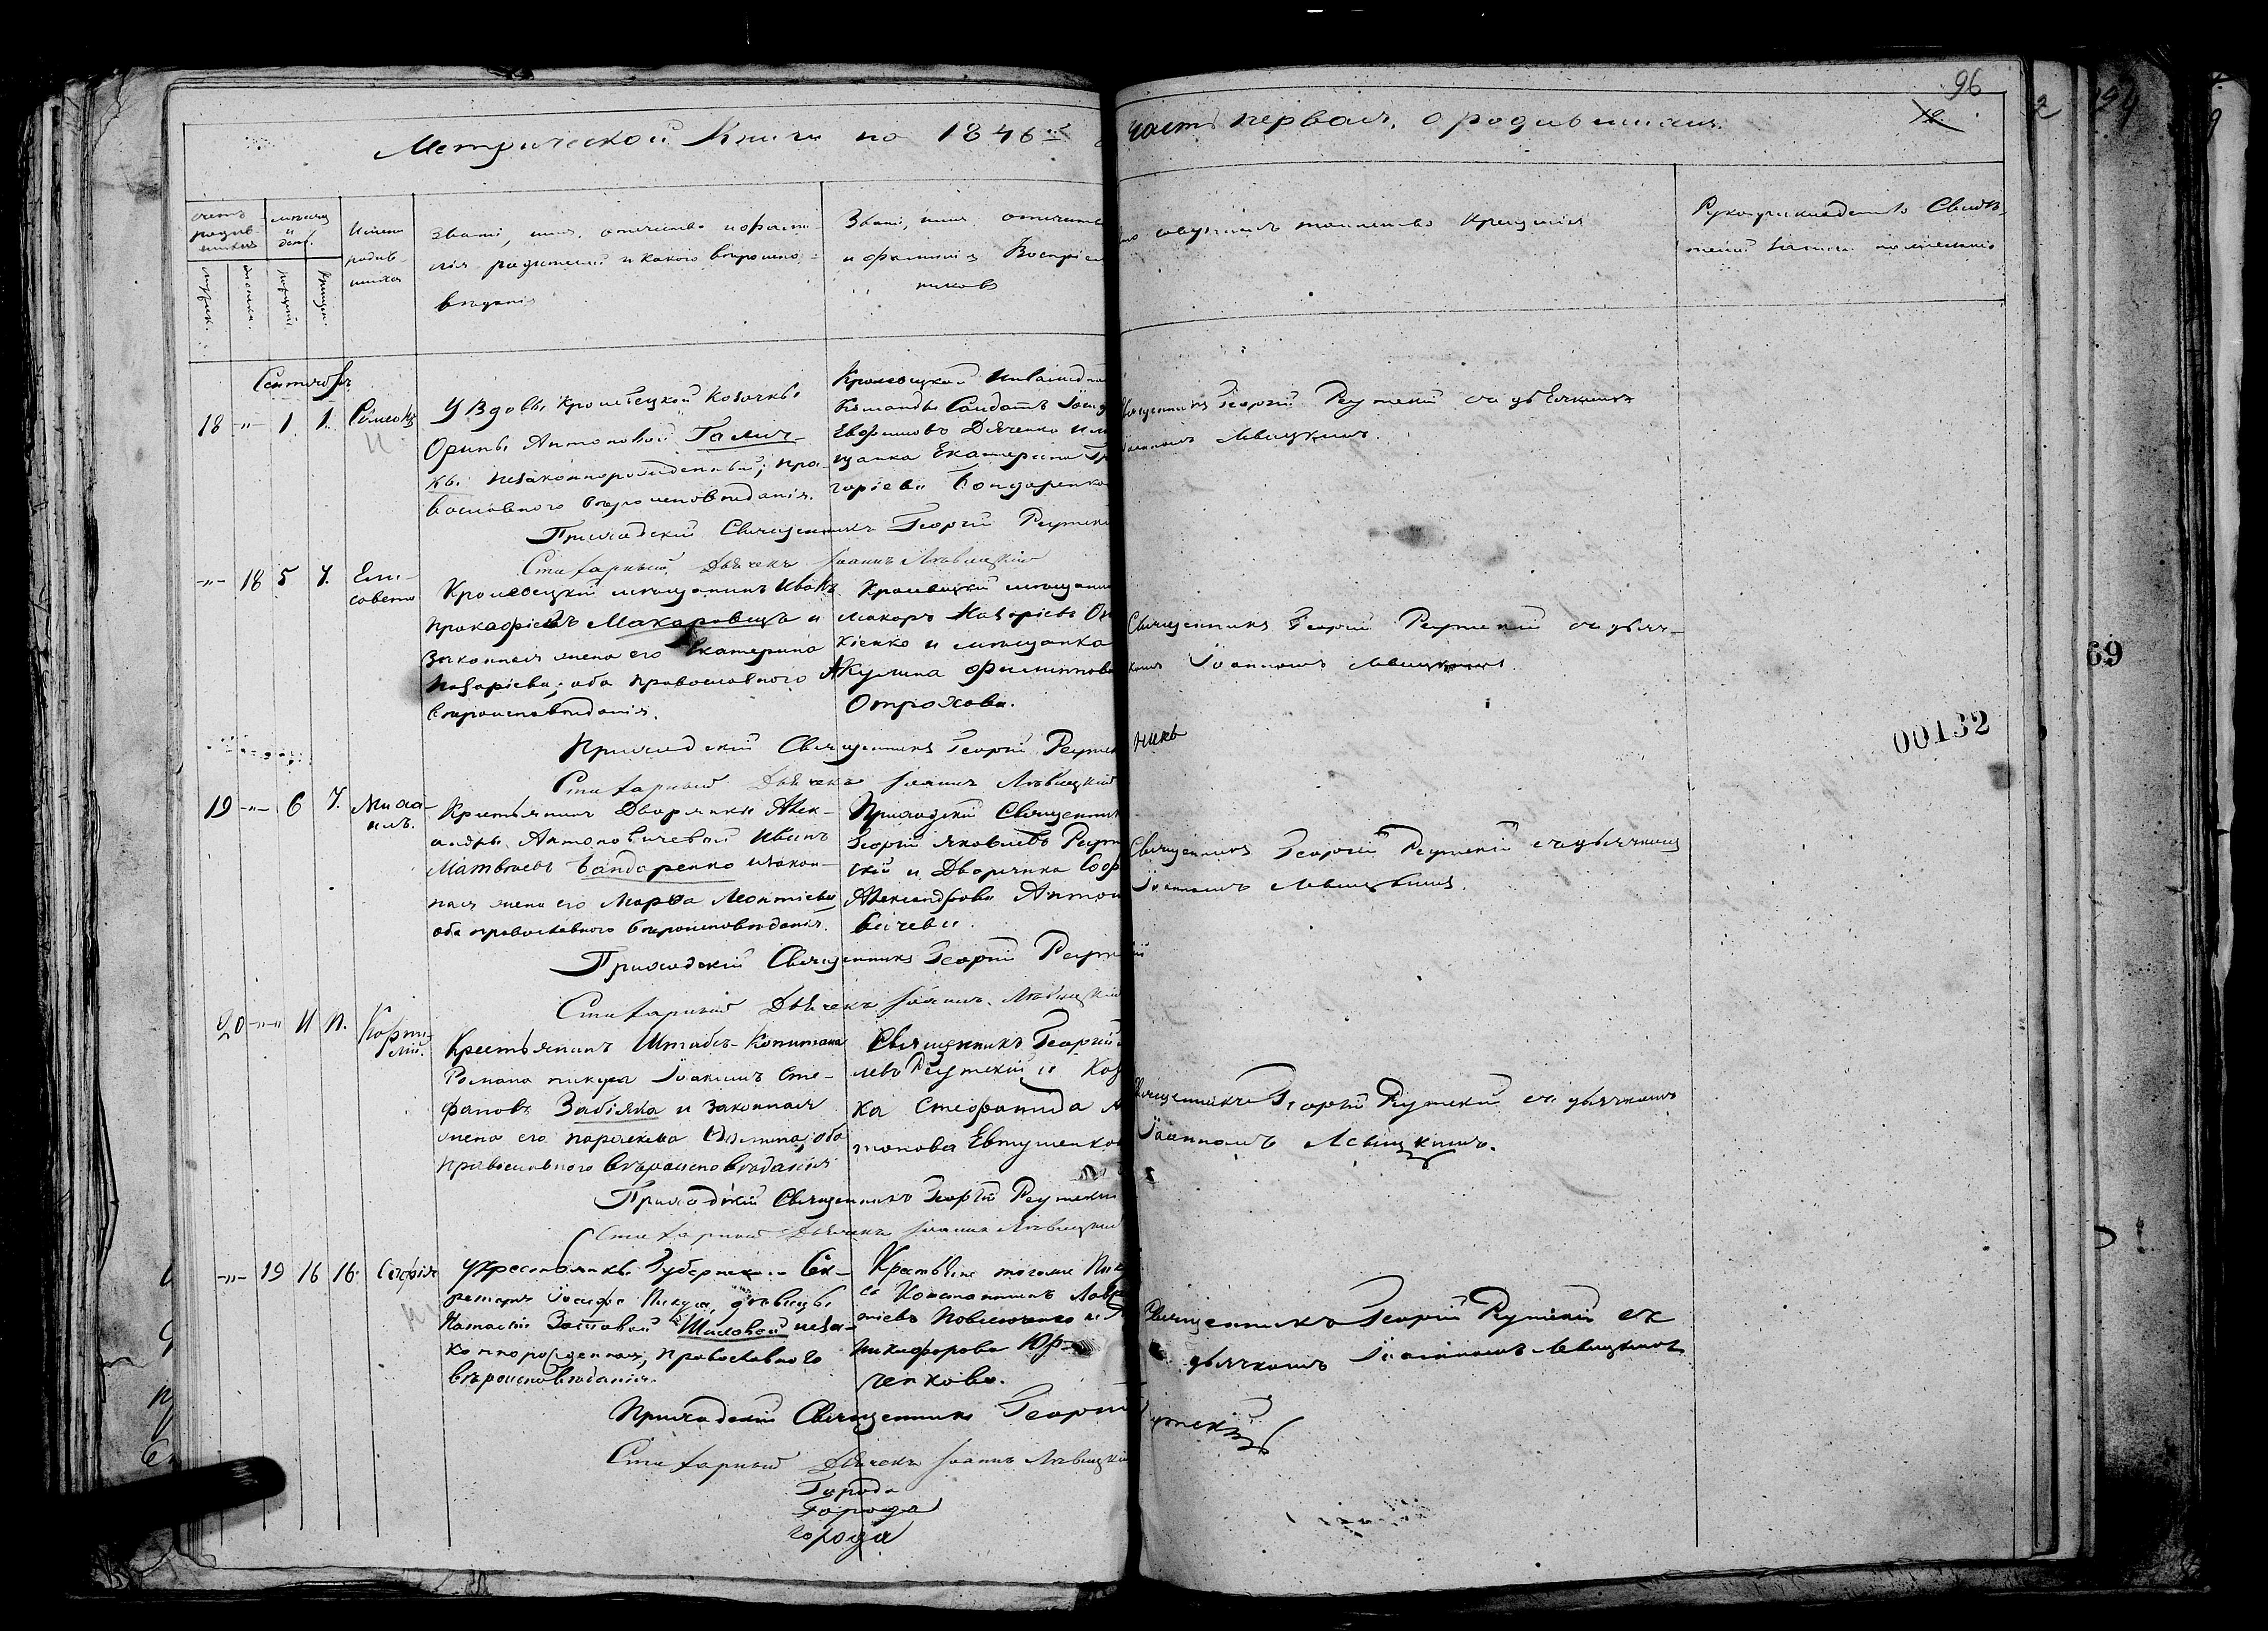 96
12
Метрической Книги на 1846й
часть первая, о родившихся.
счетъ родив-шихся
мѣсяцъ и день.
Имена родив-шихся
Званіе, имя, отечество и фами-
лія родителей и какого вѣроиспо-
вѣданія
Званіе, имя отечество
и фамилія Воспріем
никовъ
совершалъ таинство крещенія
Рукоприкладство Свидѣ-
телей записи по желанію
мужеск.
женска.
рожденія.
крещен.
Сентябрь
18 -"- 1. 1.
У Вдовы Кролевецкой Козачки
Орины Антоновой Галич-
кы. незаконнорожденный; пра-
вославного вѣроисповѣданія.
Кролевецкой Инвалидно
Команды Солдатъ
Евфимовъ Дяченко и мѣ
щанка Екатерина Гр
горіева Бондаренко
Священникъ Георгій Реутскій съ дьячкомъ
Іоанномъ Левицкимъ.
Приходскій Священникъ Георгій Реутскі
Стихарный Дьячекъ Іоаннъ Лѣвицкій
-"- 18 5 7. Ели-
савета
Кролевецкій мѣщанинъ Иванъ
Прокофіевъ Макаровецъ и
Законная жена его Екатерина
Назаріева; оба православного
вѣроисповѣданія.
Кролевецкій мѣщанин
Макаръ Назаріевъ
кіенко и мѣщанка
Акулина Филиппова
Отрохова.
Священникъ Георгій Реутскій съ дьяч-
комъ Іоанномъ Левицкимъ.
Приходскій Священникъ Георгій Реутск
Стихарный Дьячекъ Іоаннъ Лѣвицкій
00132
69
19 -"- 6 7. Миха-
илъ.
Крестьянинъ Дворянки Алек-
андры Антоновичевой Иванъ
Матвѣевъ Бандаренко и закон-
ная жена его Марѳа Леонтіева
оба православного вѣроисповѣданія.
Приходскій Священник
Георгій Яковлевъ Реут
скій и Дворянка Соф
Александрова Антон
вичева.
Священникъ Георгій Реутскій съ дьячкомъ
Іоанномъ Левицкимъ.
Приходскій Священникъ Георгій Реутскій
Стихарный Дьячекъ Іоаннъ Лѣвицкій
20 -"- 11 11. Корни-
лій.
Крестьянинъ Штабсъ-Капитана
Романа Пикуса Іоакимъ Сте-
фановъ Забіяка и законная
жена его Параскева оба
православного вѣроисповѣданія
Священникъ Георгій
левъ Реутскій и Коз
ка Стефанида
тонова Евтушенков
Священникъ Георгій Реутскій съ дьячкомъ
Іоанномъ Левицкимъ.
Приходскій Священникъ Георгій Реутскій
Стихарный Дьячекъ Іоаннъ Лѣвицкій
-"- 19 16 16. Софія
У крестьянки Губернскаго Сек-
ретаря Іосифа Пикуса, дѣвицы
Шиловой неза-
коннорожденная, православного
вѣроисповѣданія.
Крестьяне тогоже Пик
са Константинъ Лавр
тіевъ
Никифорова Юр-
ченкова.
Священникъ Георгій Реутскій съ
дьячкомъ Іоанномъ Левицкимъ
Приходскій Священникъ Георгій Реутскій
Стихарный Дьячекъ Іоаннъ Лѣвицкій
Города
Города
города